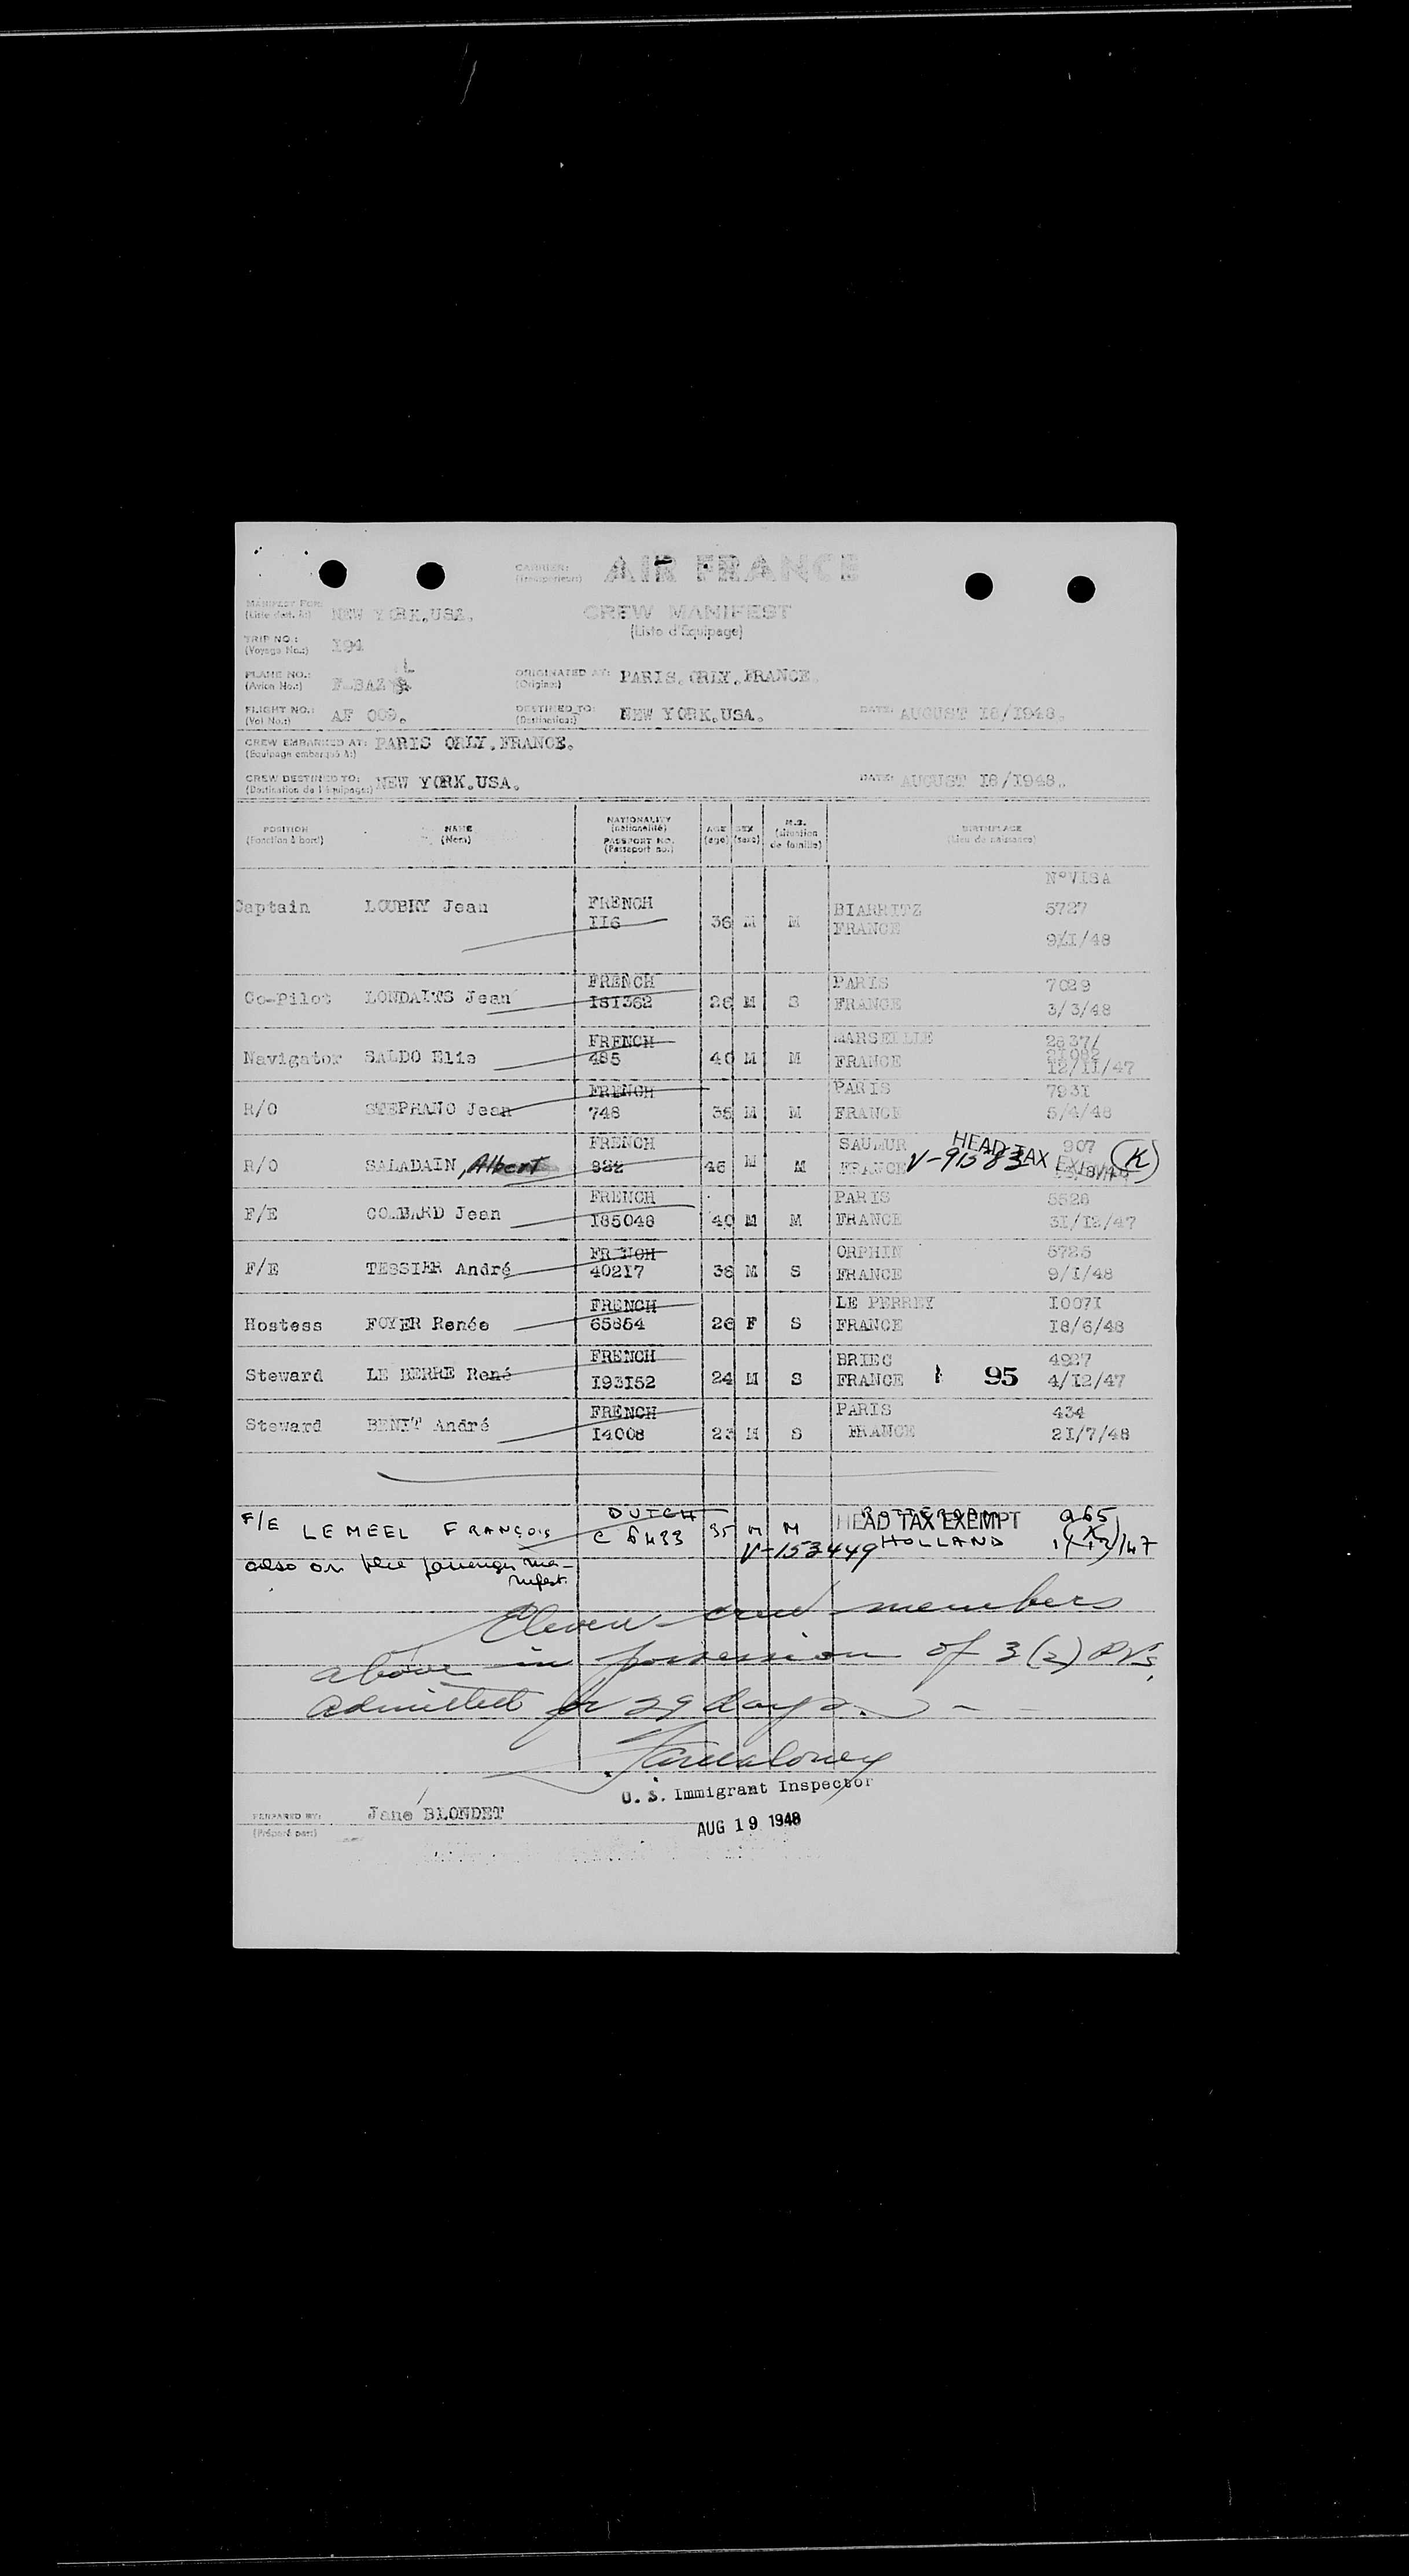 CARRIER: AIR FRANCE
(Transporteur)
MANIFEST FOR: NEW YORK.USA. CREW MANIFEST
(Liste d'Equipage)
TRIP NO.: I94
(Voyage No.:)
PLANE NO.: F-BAZ L ORIGINATED AT: PARIS.ORLY.FRANCE.
(Avion No.:) (Origine:)
FLIGHT NO.: AF 009. DESTINED TO: NEW YORK.USA. DATE: AUGUST I8/I948.
(Vol No.:) (Destination:)
CREW EMBARKED AT: PARIS ORLY.FRANCE.
(Equipage embarqué à:)
CREW DESTINED TO: NEW YORK.USA. DATE: AUGUST I8/I948.
(Destination de l'équipage:)
POSITION NAME NATIONALITY AGE SEX M.S. BIRTHPLACE
(Fonction à bord) (Nom) (nationalité) (age) (sexe) (situation de famille) (Lieu de naissance)
PASSPORT NO.
(Passeport no.)
N°VISA
Captain LOUBRY Jean FRENCH 36 M M BIARRITZ 5727
II6 FRANCE 9/I/48
FRENCH PARIS 7029
Co-Pilot LONDAITS Jean I8I362 26 M S FRANCE 3/3/48
FRENCH MARSEILLE 2837/
Navigator SALDO Elie 485 40 M M FRANCE 21082
I2/II/47
FRENCH PARIS 793I
R/O STEPHANO Jean 748 36 M M FRANCE 5/4/48
FRENCH SAUMUR HEAD TAX 907
R/O SALADAIN, Albert 882 46 M M FRANCE V-91583 (K)
FRENCH PARIS 5528
F/E COMBARD Jean I85048 40 M M FRANCE 3I/I2/47
FRENCH ORPHIN 5725
F/E TESSIER André 402I7 38 M S FRANCE 9/I/48
FRENCH LE PERREY I007I
Hostess FOYER Renée 65864 26 F S FRANCE I8/6/48
FRENCH BRIEC 4927
Steward LE BERRE René I93I52 24 M S FRANCE 95 4/I2/47
FRENCH PARIS 434
Steward BENIT André I4008 23 M S FRANCE 2I/7/48
DUTCH ROTTERDAM 965
F/E LEMEEL FRANÇOIS C 6433 35 M M HEAD TAX EXEMPT (K)
V-153449 HOLLAND
also on the passenger ma-
nifest.
Eleven crew members
above in possession of 3(2) PV's,
admitted for 29 days.
U. S. Immigrant Inspector
PREPARED BY: Jane BLONDET
(Préparé par:) AUG 19 1948